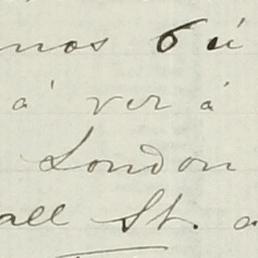 nos 6 ú
á ver á
London
all St. a